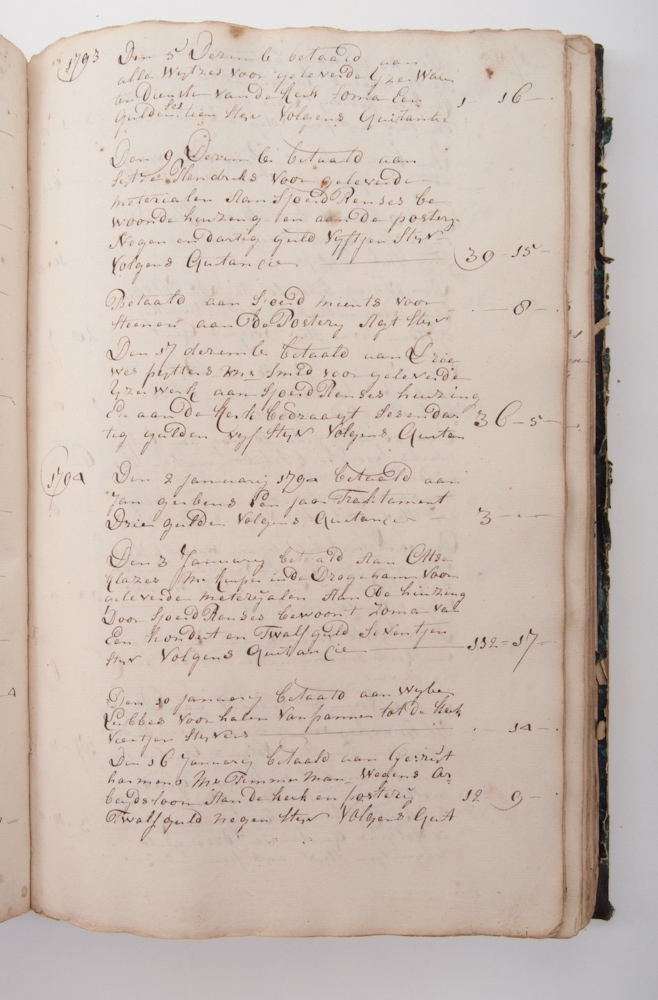 1793 Den 5 Dezemb betaald aan
alle Wytzes voor geleverde Yzer Waar
ten Dienste van de Kerk Zoma Een
gulden sestien Stvr Volgens Quitantie 1 - 16 -
Den 9 Decemb betaald aan
Sytze Hendriks voor geleverde
materialen Aan Sjoerd Renses be
woonde huizing en aan de postery
Negen en dartig guld Vyftjen Styvr
Volgens Quitancie 39 - 15 -
Betaald aan Sjoerd mients voor
Steenen aan de Postery Agt Styvr - 8 -
Den 17 dezemb betaald aan Douw
wes pytters Mr Smid voor geleverde
Yzer Werk aan Sjoerd Renses huizing
En aan de Kerk bedraagt Sesendar
tig gulden vyf Styvr Volgens Quitan 36 - 5 -
1794 Den 2 januarij 1794 betaald aan
Jan geubens Een jaar Tracktament
Drie gulden Volgens Quitancie 3 - -
Den 3 Januarij betaald Aan Otte
glazes Mr Kuiper in de Drogeham Voor
geleverde meterijalen Aan De huizing
Door Sjoerd Renses bewoont Zoma van
Een Hondert en Twalf guld Seventjen
Styvr Volgens Quitancie 112 = 17
Den 10 januarij betaald aan Wybe
Lubbes Voor halen Van pannen tot de Kerk
Viertjen Styvers - 14 -
Den 16 Januarij betaald aan Gerrijt
harmens Mr Timmerman Wegens Ar
beydsloon Aan de kerk en postery 12 9 -
Twalf guld negen Styvr Volgens Quit